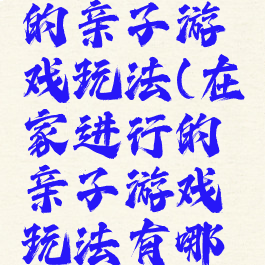 的亲子游
戏玩法(在
家进行的
亲子游戏
玩法有哪